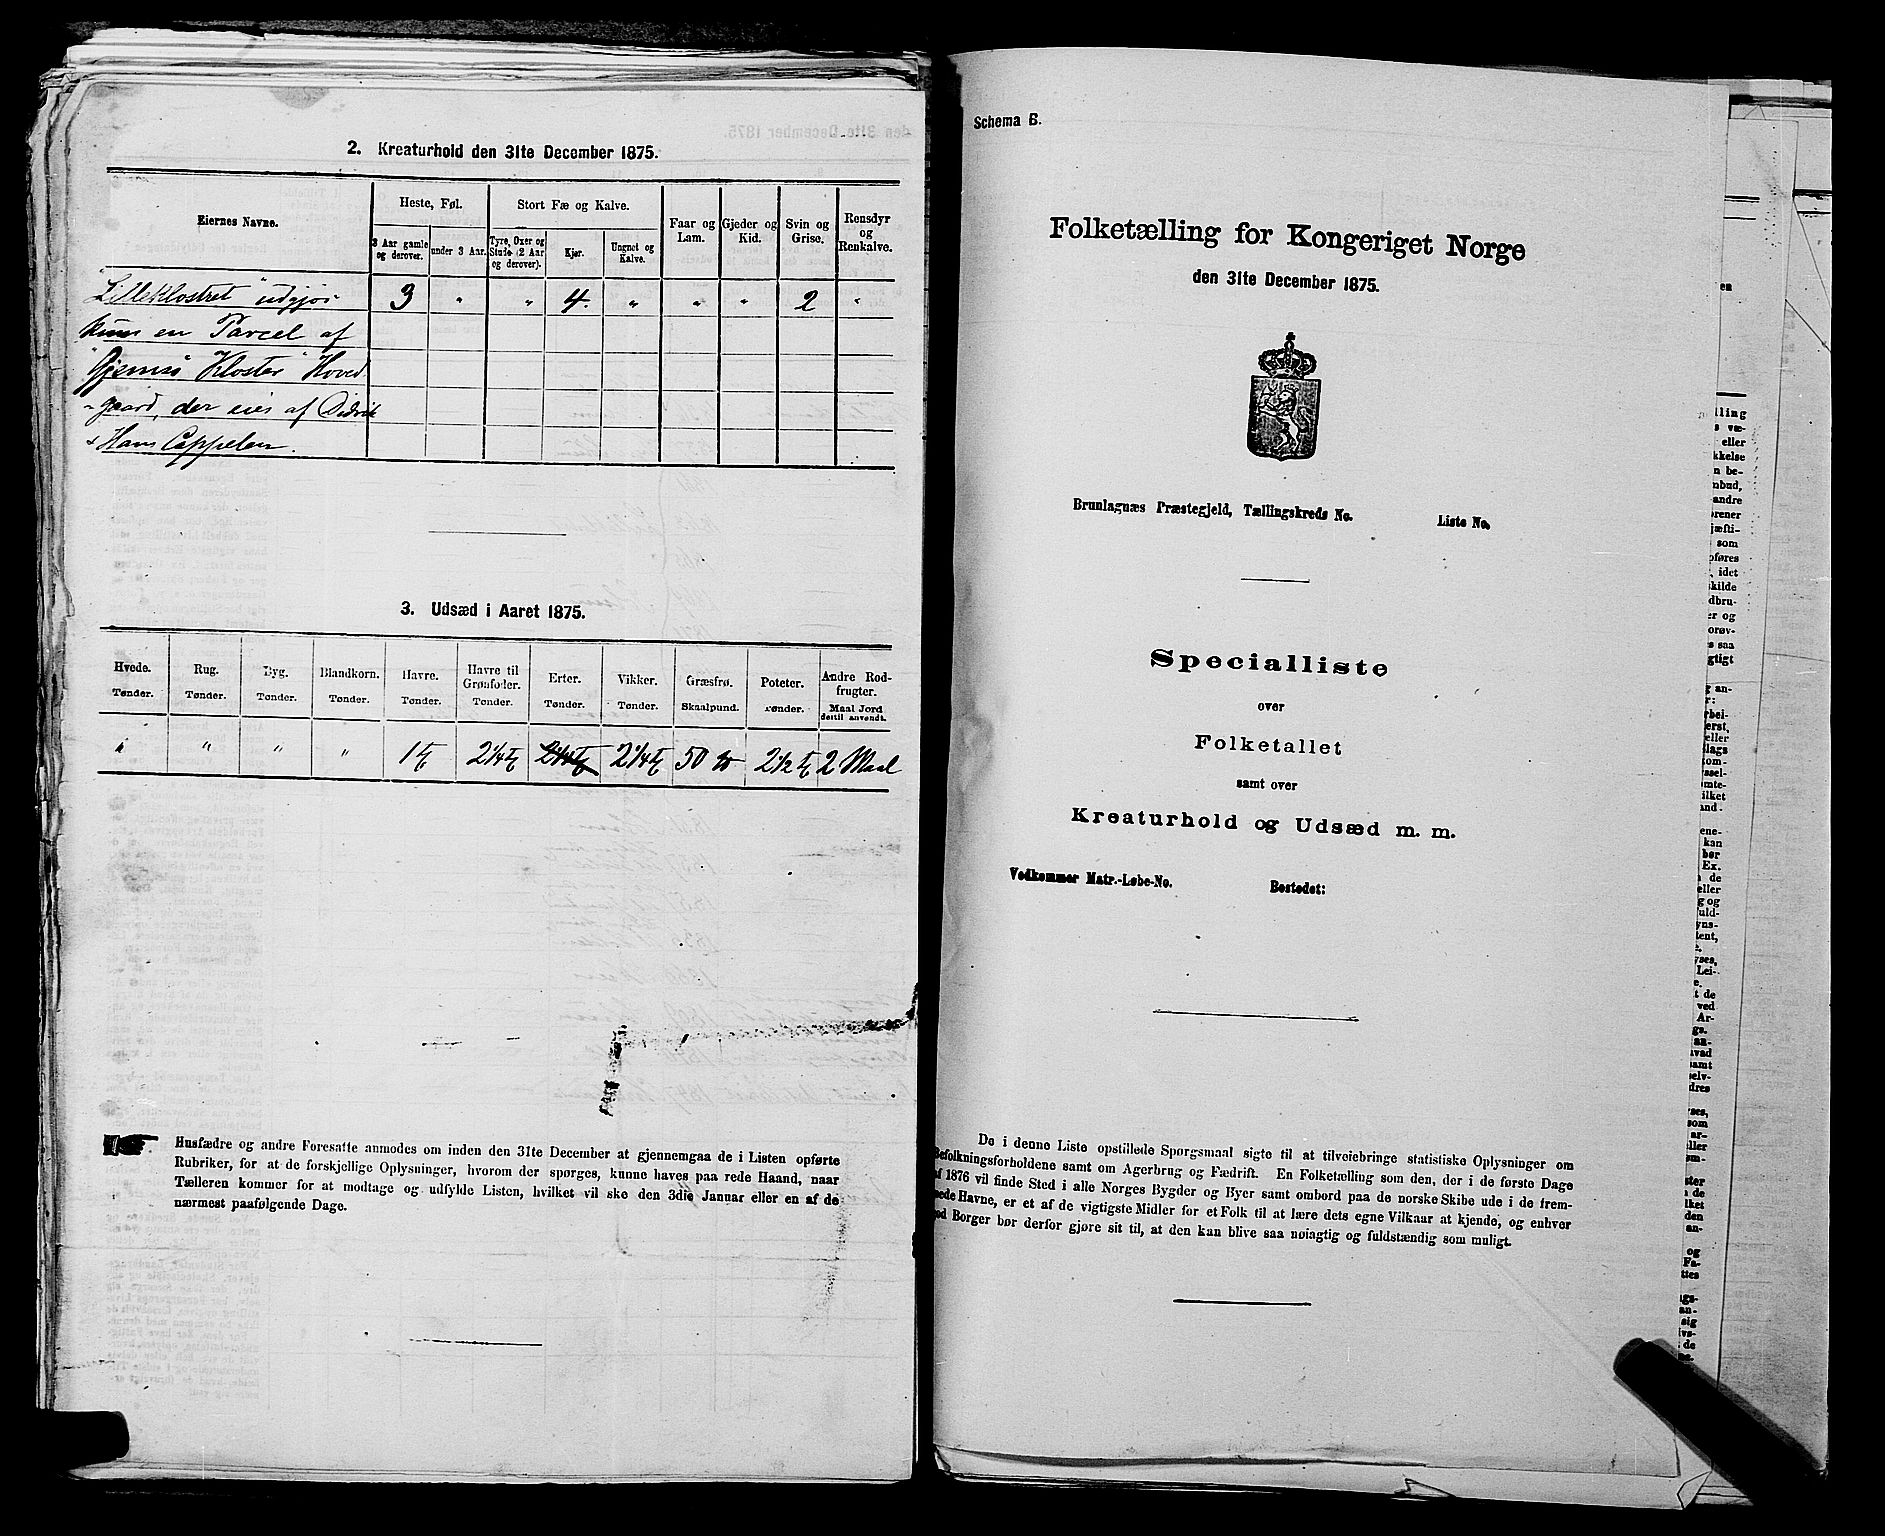 2. Kreaturhold den 31te December 1875.
Eiernes Navne.
Heste, Føl.
3 Aar gamle og derover.
under 3 Aar.
Stort Fæ og Kalve.
Tyre, Oxer og Stude (2 Aar og derover).
Kjør.
Ungnet og Kalve.
Faar og Lam.
Gjeder og Kid.
Svin og Grise.
Rensdyr og Renkalve.
"Lilleklostret" udgjør 3 " " 4. " " " 2 "
kun en Parcel af
"Gjemsø Kloster" Hoved-
gaard, der eies af Didrik
& Hans Cappelen.
3. Udsæd i Aaret 1875.
Hvede. Tønder.
Rug. Tønder.
Byg. Tønder.
Blandkorn. Tønder.
Havre. Tønder.
Havre til Grønfoder. Tønder.
Erter. Tønder.
Vikker. Tønder.
Græsfrø. Skaalpund.
Poteter. Tønder.
Andre Rodfrugter. Maal Jord dertil anvendt.
" " " " 1 T 2 1/4 T 2 1/4 T 2 1/4 T 50 ℔ 2 1/2 T 2 Maal
Husfædre og andre Foresatte anmodes om inden den 31te December at gjennemgaa de i Listen opførte
Rubriker, for at de forskjellige Oplysninger, hvorom der spørges, kunne haves paa rede Haand, naar
Tælleren kommer for at modtage og udfylde Listen, hvilket vil ske den 3die Januar eller en af de
nærmest paafølgende Dage.
Schema B.
Folketælling for Kongeriget Norge
den 31te December 1875.
Brunlagnæs Præstegjeld, Tællingskreds No. Liste No.
Specialliste
over
Folketallet
samt over
Kreaturhold og Udsæd m. m.
Vedkommer Matr.-Løbe-No. Bostedet:
De i denne Liste opstillede Spørgsmaal sigte til at tilveiebringe statistiske Oplysninger om
Befolkningsforholdene samt om Agerbrug og Fædrift. En Folketælling som den, der i de første Dage
af 1876 vil finde Sted i alle Norges Bygder og Byer samt ombord paa de norske Skibe ude i de frem-
mede Havne, er et af de vigtigste Midler for et Folk til at lære dets egne Vilkaar at kjende, og enhver
god Borger bør derfor gjøre sit til, at den kan blive saa nøiagtig og fuldstændig som muligt.